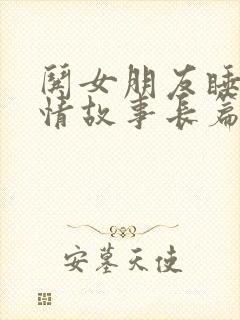 闋女朋友睡
情故事長篇
安墓天使